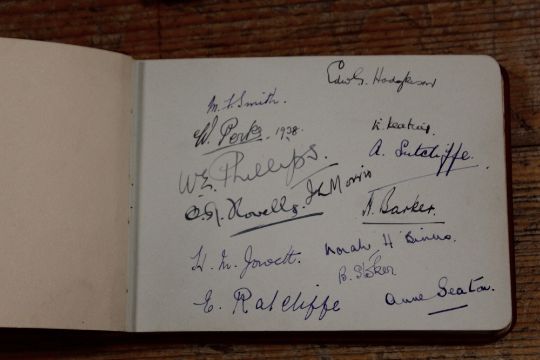 Edw G. Hodgkinson
M. F. Smith.
W. Perks 1938.
K. Keating.
W E Phillips.
A. Sutcliffe.
J L Morris
O. A. Novello.
A. Barker.
H. M. Jowett.
Norah H Binns.
B. Stoker
E. Ratcliffe
Anne Seaton.